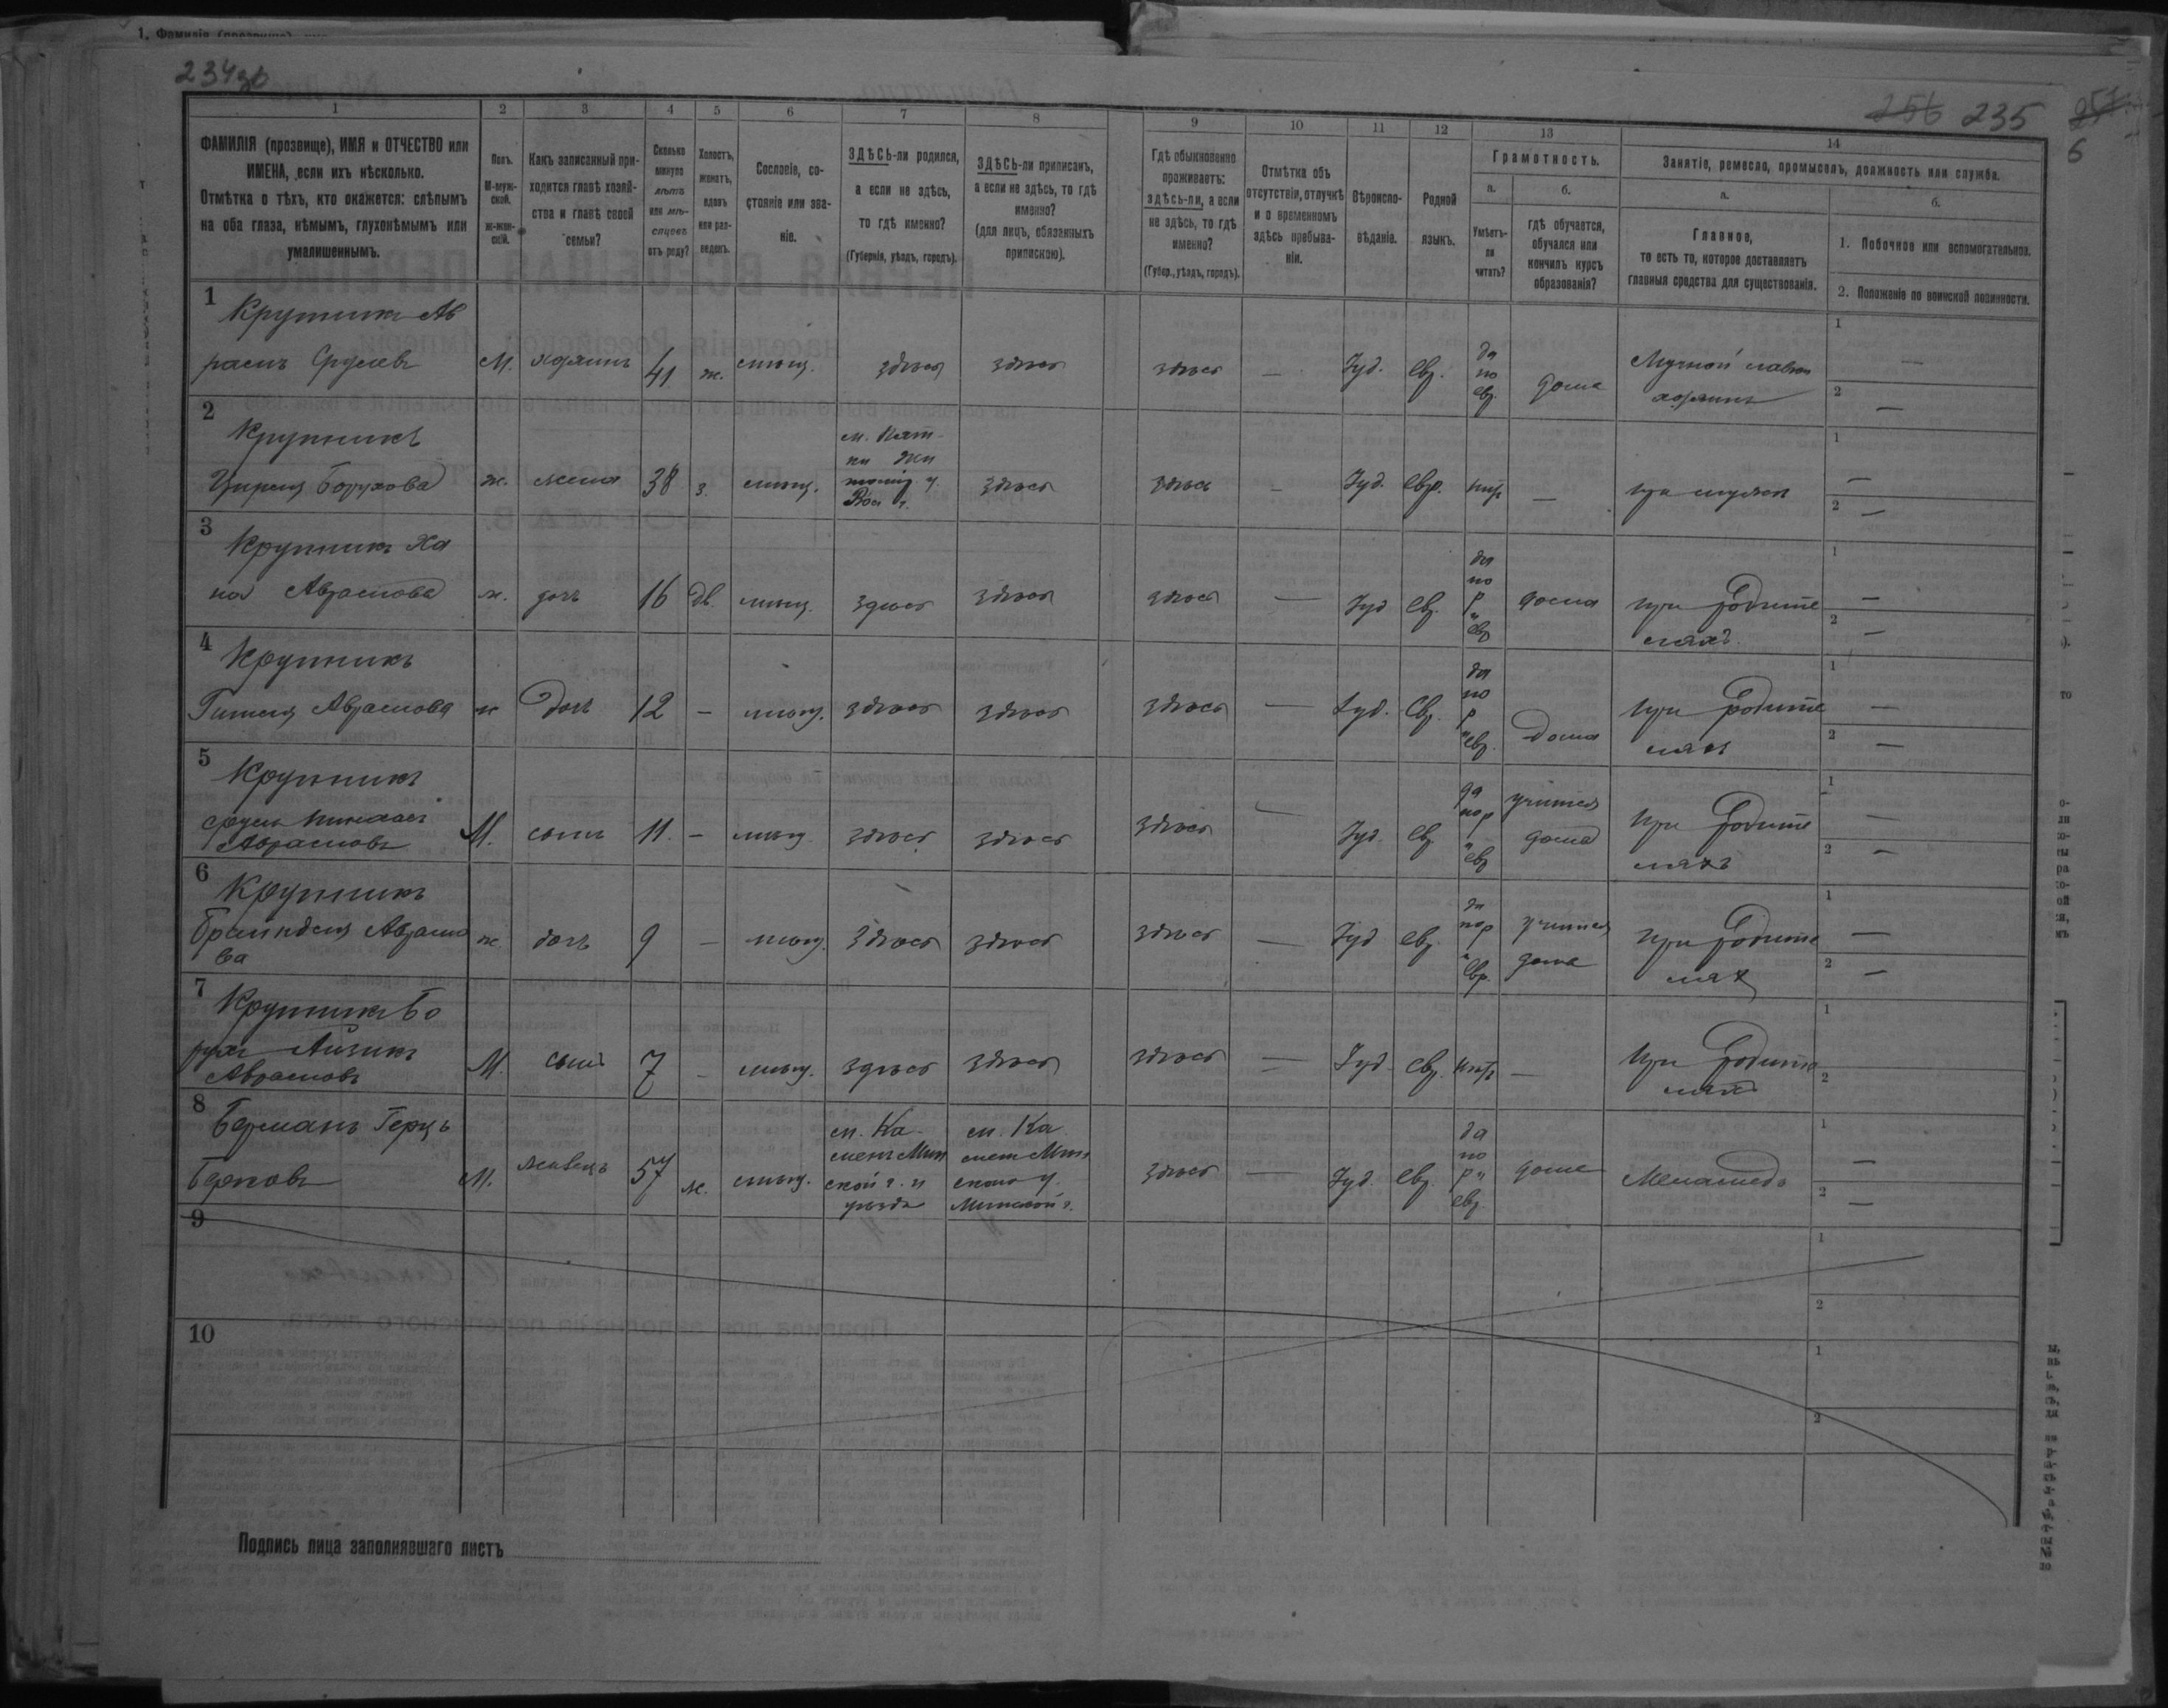 234об
256 235
6
1
2
3
4
5
6
7
8
9
10
11
12
13
14
ФАМИЛІЯ (прозвище), ИМЯ и ОТЧЕСТВО или
ИМЕНА, если ихъ нѣсколько.
Отмѣтка о тѣхъ, кто окажется: слѣпымъ
на оба глаза, нѣмымъ, глухонѣмымъ или
умалишеннымъ.
Полъ.
М-муж-
ской.
Ж-жен-
скій.
Какъ записанный при-
ходится главѣ хозяй-
ства и главѣ своей
семьи?
Сколько
минуло
лѣтъ
или мѣ-
сяцевъ
отъ роду?
Холостъ,
женатъ,
вдовъ
или раз-
веденъ.
Сословіе, со-
стояніе или зва-
ніе.
ЗДѢСЬ-ли родился,
а если не здѣсь,
то гдѣ именно?
(Губернія, уѣздъ, городъ).
ЗДѢСЬ-ли приписанъ,
а если не здѣсь, то гдѣ
именно?
(для лицъ, обязанныхъ
припискою).
Гдѣ обыкновенно
проживаетъ:
здѣсь-ли, а если
не здѣсь, то гдѣ
именно?
(Губер., уѣздъ, городъ).
Отмѣтка объ
отсутствіи, отлучкѣ
и о временномъ
здѣсь пребыва-
ніи.
Вѣроиспо-
вѣданіе.
Родной
языкъ.
Грамотность.
а.
Умѣетъ-
ли
читать?
б.
гдѣ обучается,
обучался или
кончилъ курсъ
образованія?
Занятіе, ремесло, промыселъ, должность или служба.
а.
Главное,
то есть то, которое доставляетъ
главныя средства для существованія.
б.
1. Побочное или вспомогательное.
2. Положеніе по воинской повинности.
1
Крупникъ Ав
рамъ Срулевъ М. хозяинъ 41 ж. мѣщ. здѣсь здѣсь здѣсь — Іуд. евр. да по евр. дома
Мучной лавки
хозяинъ
2
Крупникъ
Борухова ж. жена 38 з. мѣщ. здѣсь здѣсь — Іуд. евр. нѣтъ — при мужѣ
3
Крупникъ Ха
на Аврамова ж. дочь 16 дв. мѣщ. здѣсь здѣсь здѣсь — Іуд евр. да по р и евр дома
при родите
ляхъ.
4
Крупникъ
Аврамова ж дочь 12 — мѣщ. здѣсь здѣсь здѣсь — Іуд. евр. да по р и евр. дома
при родите
ляхъ
5
Крупникъ
Аврамовъ М. сынъ 11. — мѣщ здѣсь здѣсь здѣсь — Іуд. евр да по р и евр учится дома
при родите
ляхъ
6
Крупникъ
Аврамо
ва ж. дочь 9 — мѣщ. здѣсь здѣсь здѣсь — Іуд евр. да по р и евр. учится дома
при родите
лях
7
Крупникъ Бо
рухъ Айзикъ
Аврамовъ М. сынъ 7 — мѣщ. здѣсь здѣсь здѣсь — Іуд. евр. нѣтъ —
при родите
ляхъ
8
Берманъ Герцъ
Берковъ М. жилецъ 57 ж. мѣщ.
м. Ка-
мень Мин
ской г. и
уѣзда
м. Ка
мень Мин
скаго у.
Минской г.
здѣсь — Іуд. евр. да по р и евр. дома Меламедъ
9
10
Подпись лица заполнявшаго листъ